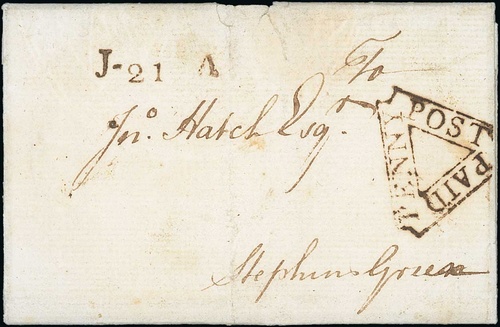 J-21 A
To
Jno. Hatch Esqr.
PENNY POST PAID
Stephens Green